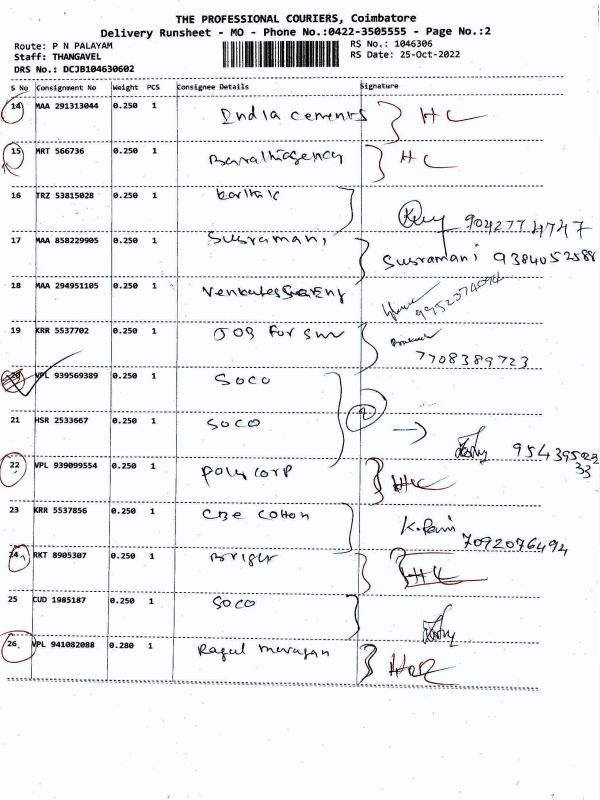 THE PROFESSIONAL COURIERS, Coimbatore
Delivery Runsheet - MO - Phone No.:0422-3505555 - Page No.:2
Route: P N PALAYAM RS No.: 1046306
Staff: THANGAVEL RS Date: 25-Oct-2022
DRS No.: DCJB104630602
S No Consignment No Weight PCS Consignee Details Signature
14 MAA 291313044 0.250 1 India cements HC
15 MRT 566736 0.250 1 HC
16 TRZ 53815028 0.250 1 Karthik
9042774747
17 MAA 858229905 0.250 1 Susramani Susramani 9384052588
18 MAA 294951105 0.250 1
19 KRR 5537702 0.250 1 JOB for
7708389723
20 VPL 939569389 0.250 1 SOCO
21 HSR 2533667 0.250 1 SOCO
22 VPL 939099554 0.250 1 Poly corp HC
23 KRR 5537856 0.250 1 CBE Cotton
7092076494
24 RKT 8905307 0.250 1 HC
25 CUD 1985187 0.250 1 SOCO
26 VPL 941082088 0.280 1 Ragul